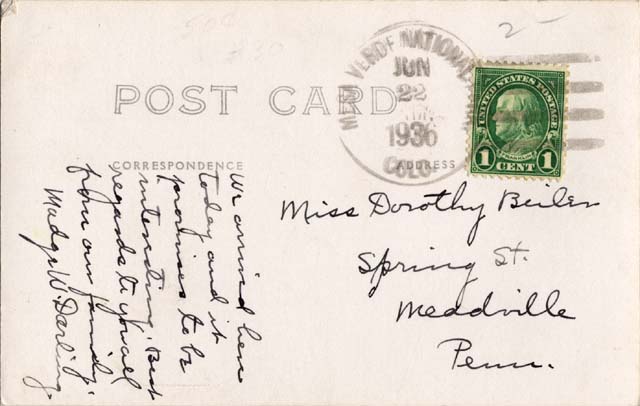 50¢
2-
POST CARD
MESA VERDE NATIONAL
JUN
22
1936
COLO.
UNITED STATES POSTAGE
FRANKLIN
1 CENT 1
CORRESPONDENCE
ADDRESS
We arrived here
today and it
promises to be
interesting. Best
regards to you all
from our family.
Madge W. Darling
Miss Dorothy Beiler
Spring St.
Meadville
Penn.